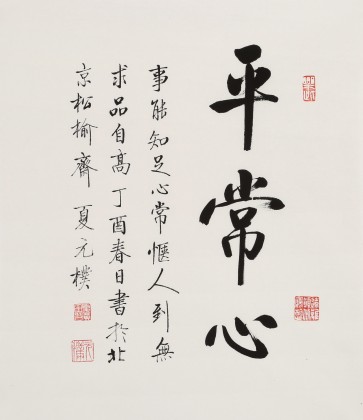 平常心
事能知足心常惬人到無
求品自高丁酉春日書於北
京松榆齋夏元樸